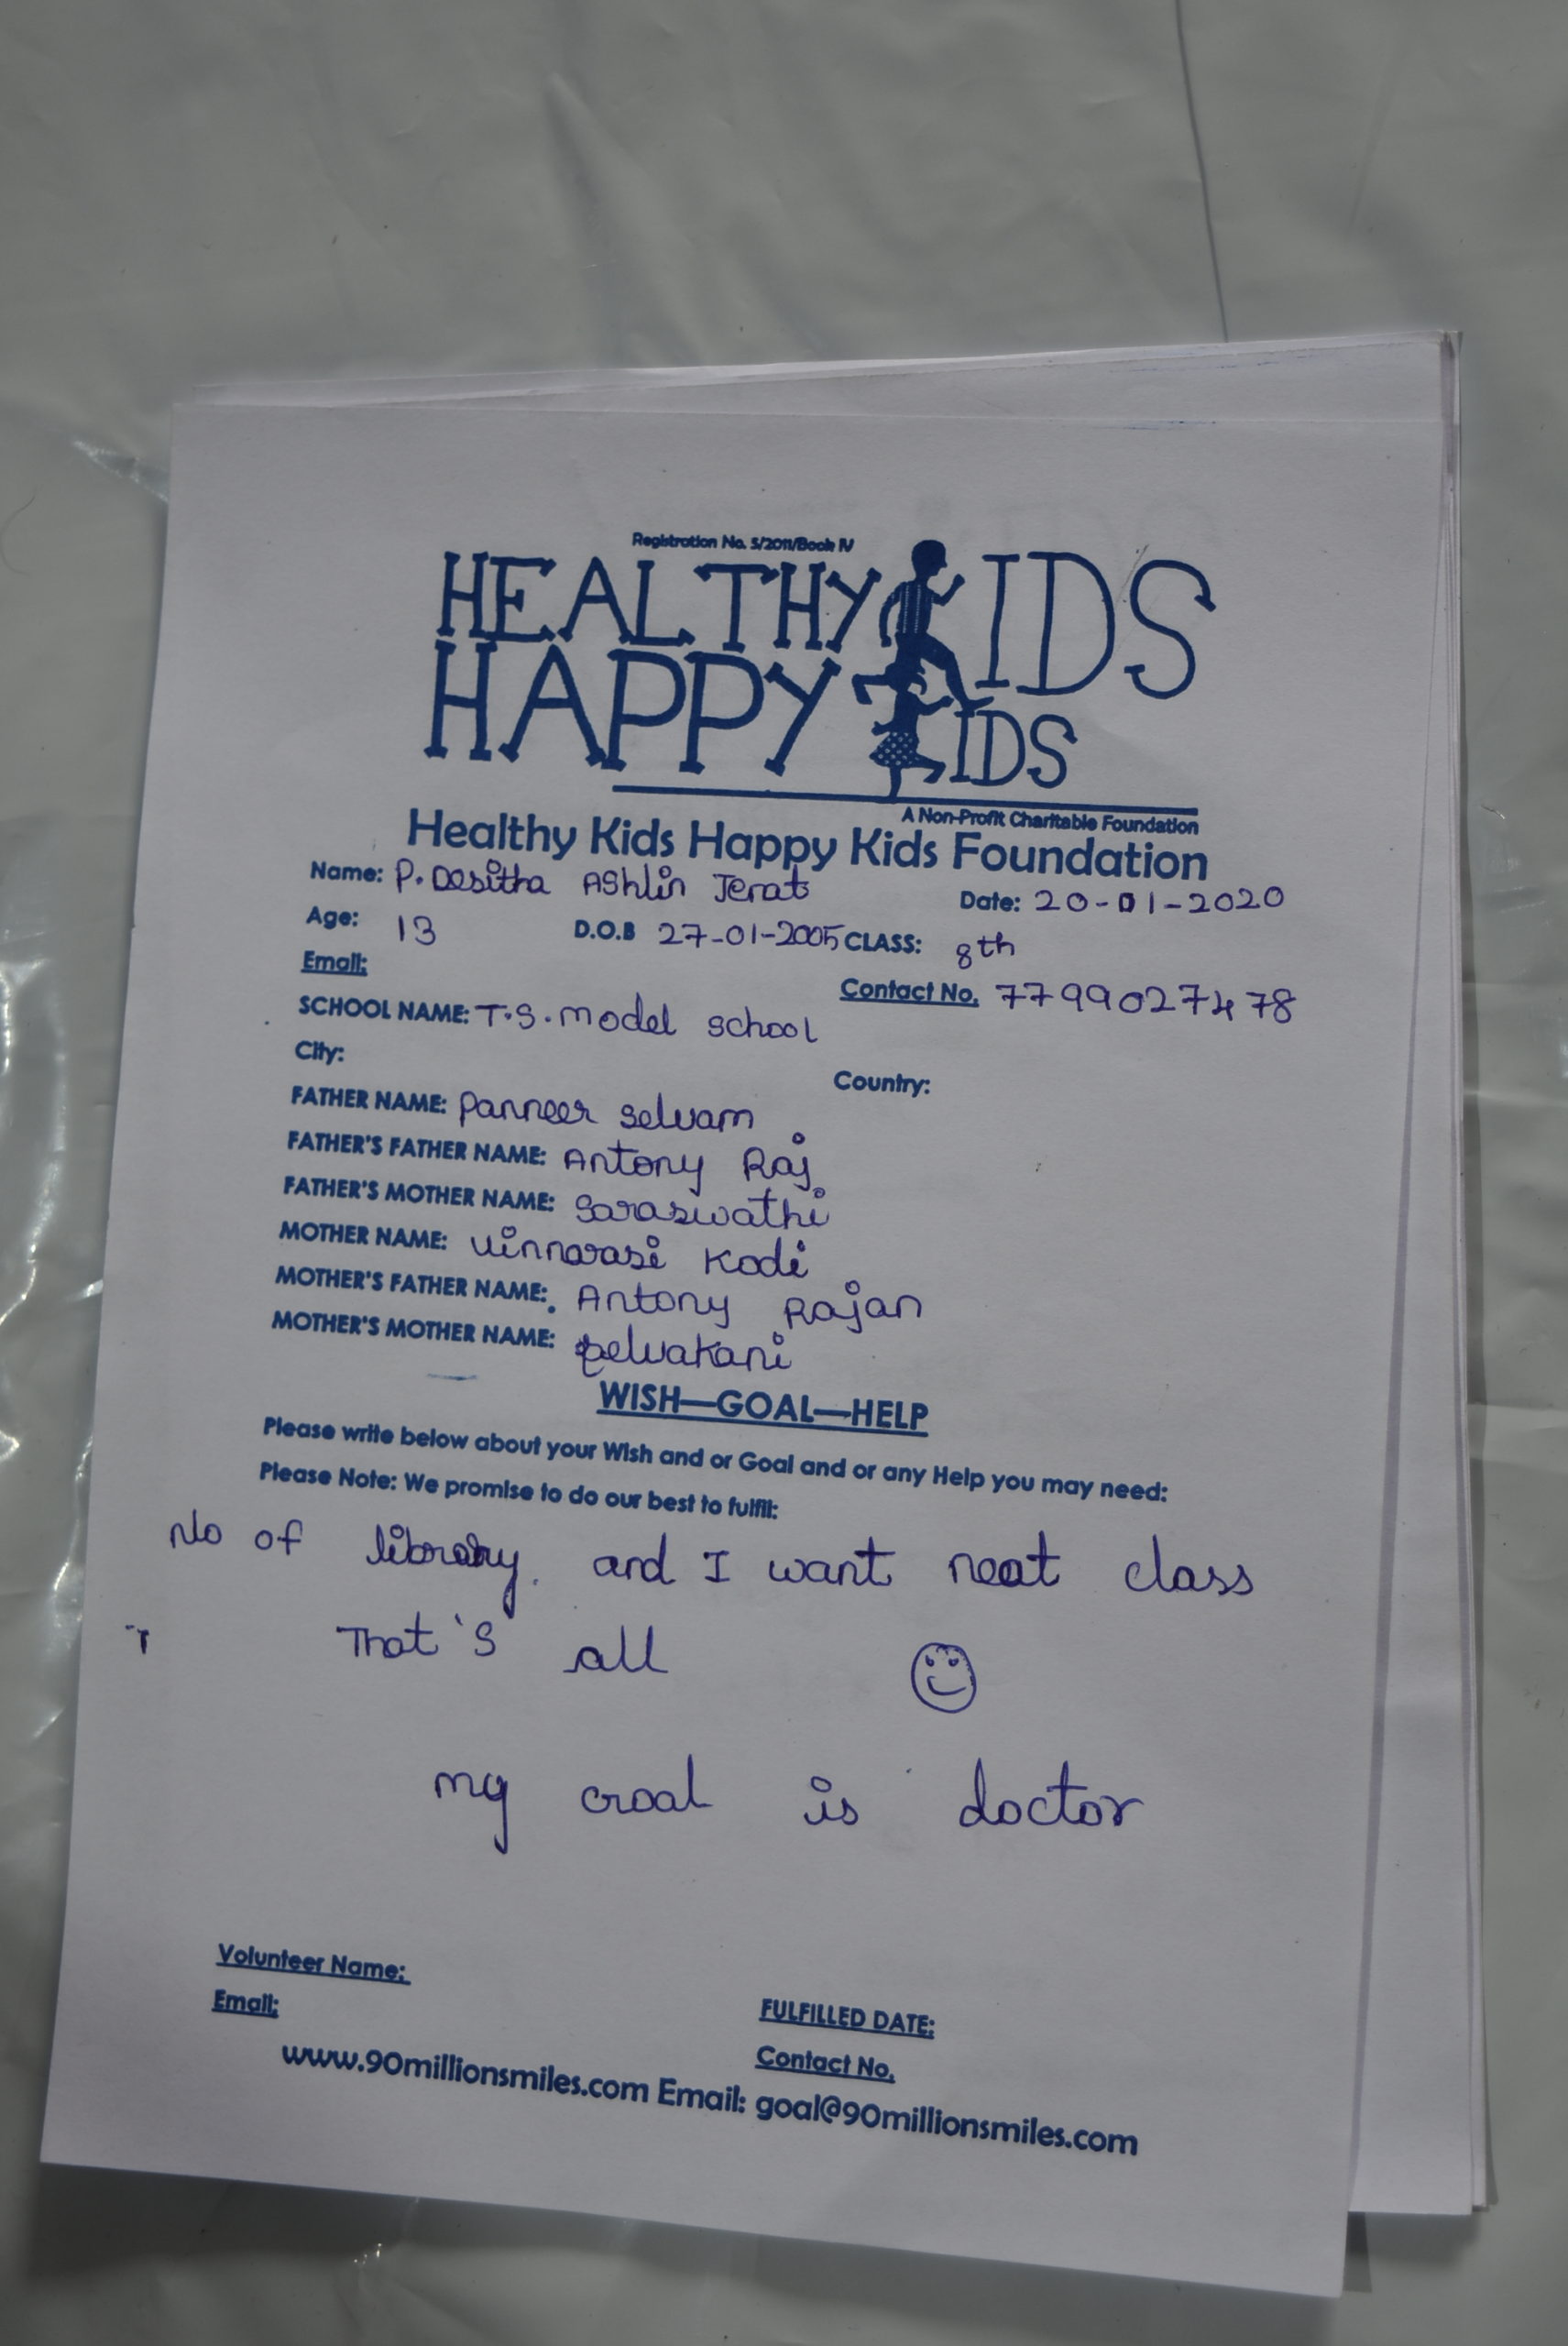 Registration No. 5/2011/Book IV
HEALTHY KIDS
HAPPY KIDS
A Non-Profit Charitable Foundation
Healthy Kids Happy Kids Foundation
Name: P. Desitha Ashlin Jerat Date: 20-01-2020
Age: 13 D.O.B 27-01-2005 CLASS: 8th
Email:
Contact No. 7799027478
SCHOOL NAME: T.S. model school
City: Country:
FATHER NAME: Panneer selvam
FATHER'S FATHER NAME: Antony Raj
FATHER'S MOTHER NAME: Saraswathi
MOTHER NAME: Vinnarasi Kodi
MOTHER'S FATHER NAME: Antony Rajan
MOTHER'S MOTHER NAME: selvakani
WISH—GOAL—HELP
Please write below about your Wish and or Goal and or any Help you may need:
Please Note: We promise to do our best to fulfil:
No of library. and I want neat class
That's all
my Goal is doctor
Volunteer Name:
Email: FULFILLED DATE:
Contact No.
www.90millionsmiles.com Email: goal@90millionsmiles.com